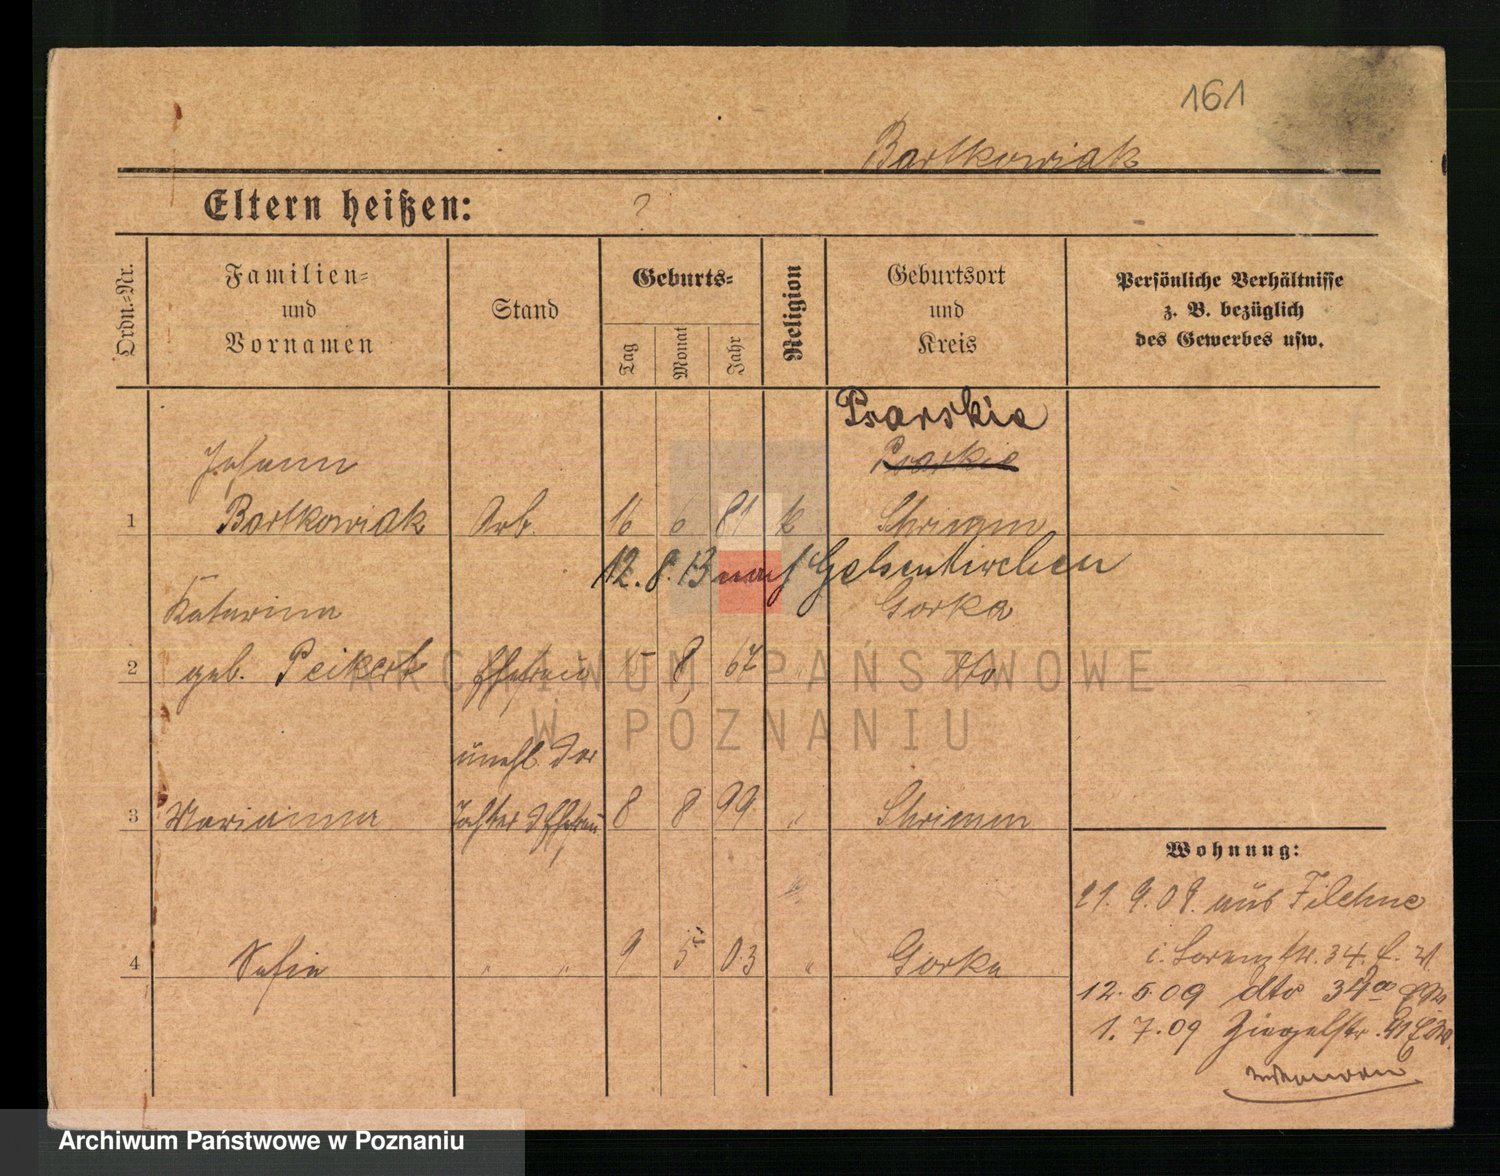 161
Bartkowiak
Eltern heißen: ?
Ordn.-Nr.
Familien-
und
Vornamen
Stand
Geburts-
Tag
Monat
Jahr
Religion
Geburtsort
und
Kreis
Persönliche Verhältnisse
z. B. bezüglich
des Gewerbes usw.
Psarskie
Johann
Psarskie
1 Bartkowiak Arb. 16 6 81 k Schrimm
12. 8. 13 nach Gelsenkirchen
Katarina
Gorka
2 geb. Peikert Ehefrau 5 8 67 dto
unehl. der
3 Marianna Tochter d Ehefrau 8 8 99 " Schrimm
4 Sofia " " 9 5 03 " Gorka
Wohnung:
21. 9. 08. aus Filehne
34
12. 5. 09 dto 34a
1. 7. 09 Ziegelstr.
ARCHIWUM PAŃSTWOWE
W POZNANIU
Archiwum Państwowe w Poznaniu